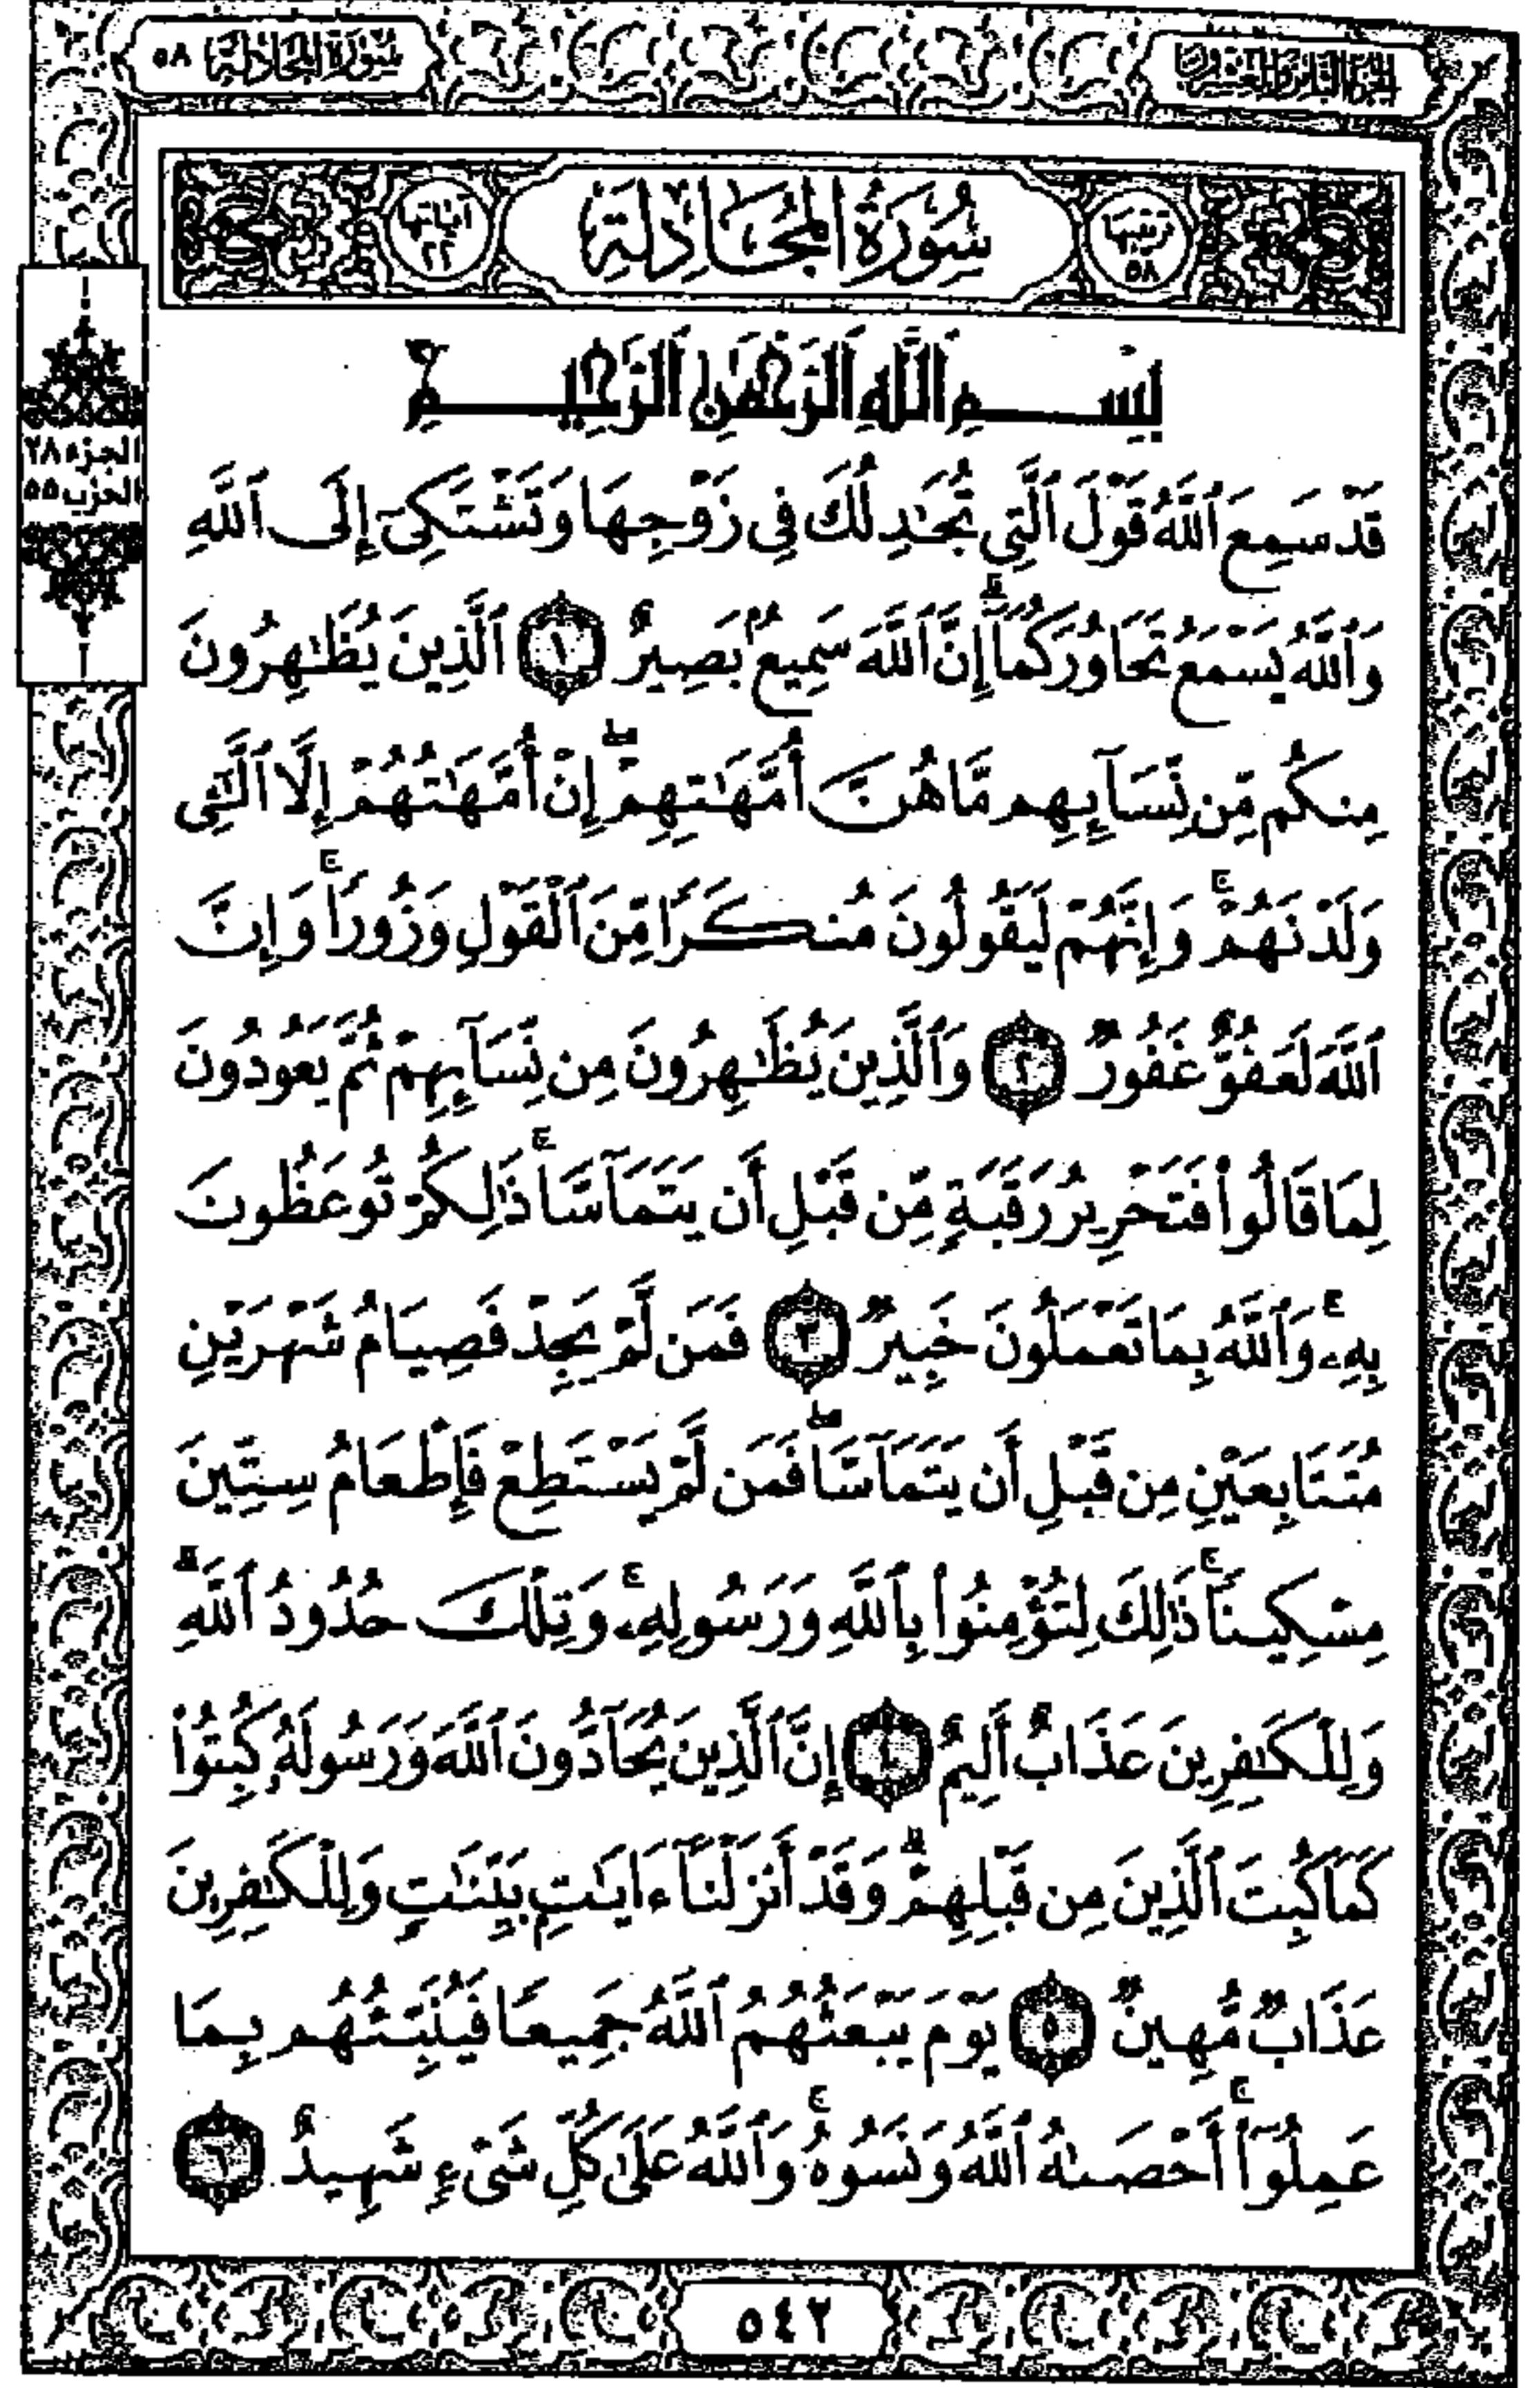 الجزء الثامن والعشرون
سُورَةُ المُجَادلَةِ ٥٨
ترتيبها ٥٨
سُورَةُ المُجَادِلَةِ
آياتها ٢٢
الجزء ٢٨
الحزب ٥٥
بِسْمِ ٱللَّهِ ٱلرَّحْمَٰنِ ٱلرَّحِيمِ
قَدْ سَمِعَ ٱللَّهُ قَوْلَ ٱلَّتِي تُجَٰدِلُكَ فِي زَوْجِهَا وَتَشْتَكِىٓ إِلَى ٱللَّهِ
وَٱللَّهُ يَسْمَعُ تَحَاوُرَكُمَآۚ إِنَّ ٱللَّهَ سَمِيعٌۢ بَصِيرٌ ١ ٱلَّذِينَ يُظَٰهِرُونَ
مِنكُم مِّن نِّسَآئِهِم مَّا هُنَّ أُمَّهَٰتِهِمْۖ إِنْ أُمَّهَٰتُهُمْ إِلَّا ٱلَّٰٓـِٔى
وَلَدْنَهُمْۚ وَإِنَّهُمْ لَيَقُولُونَ مُنكَرًا مِّنَ ٱلْقَوْلِ وَزُورًاۚ وَإِنَّ
ٱللَّهَ لَعَفُوٌّ غَفُورٌ ٢ وَٱلَّذِينَ يُظَٰهِرُونَ مِن نِّسَآئِهِمْ ثُمَّ يَعُودُونَ
لِمَا قَالُوا۟ فَتَحْرِيرُ رَقَبَةٍ مِّن قَبْلِ أَن يَتَمَآسَّاۚ ذَٰلِكُمْ تُوعَظُونَ
بِهِۦۚ وَٱللَّهُ بِمَا تَعْمَلُونَ خَبِيرٌ ٣ فَمَن لَّمْ يَجِدْ فَصِيَامُ شَهْرَيْنِ
مُتَتَابِعَيْنِ مِن قَبْلِ أَن يَتَمَآسَّاۖ فَمَن لَّمْ يَسْتَطِعْ فَإِطْعَامُ سِتِّينَ
مِسْكِينًاۚ ذَٰلِكَ لِتُؤْمِنُوا۟ بِٱللَّهِ وَرَسُولِهِۦۚ وَتِلْكَ حُدُودُ ٱللَّهِۗ
وَلِلْكَٰفِرِينَ عَذَابٌ أَلِيمٌ ٤ إِنَّ ٱلَّذِينَ يُحَآدُّونَ ٱللَّهَ وَرَسُولَهُۥ كُبِتُوا۟
كَمَا كُبِتَ ٱلَّذِينَ مِن قَبْلِهِمْۗ وَقَدْ أَنزَلْنَآ ءَايَٰتٍۭ بَيِّنَٰتٍ وَلِلْكَٰفِرِينَ
عَذَابٌ مُّهِينٌ ٥ يَوْمَ يَبْعَثُهُمُ ٱللَّهُ جَمِيعًا فَيُنَبِّئُهُم بِمَا
عَمِلُوٓا۟ۚ أَحْصَىٰهُ ٱللَّهُ وَنَسُوهُۚ وَٱللَّهُ عَلَىٰ كُلِّ شَىْءٍ شَهِيدٌ ٦
٥٤٢